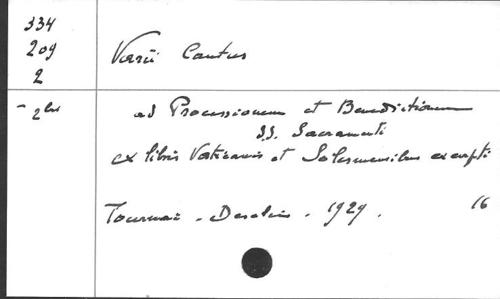 334
209
2
- 2bis
Varii Cantus
ad Processionem et Benedictionem
S.S. Sacramenti
ex libris Vaticanis et Solesmensibus excerpti
Tournai - Desclée - 1929.
16